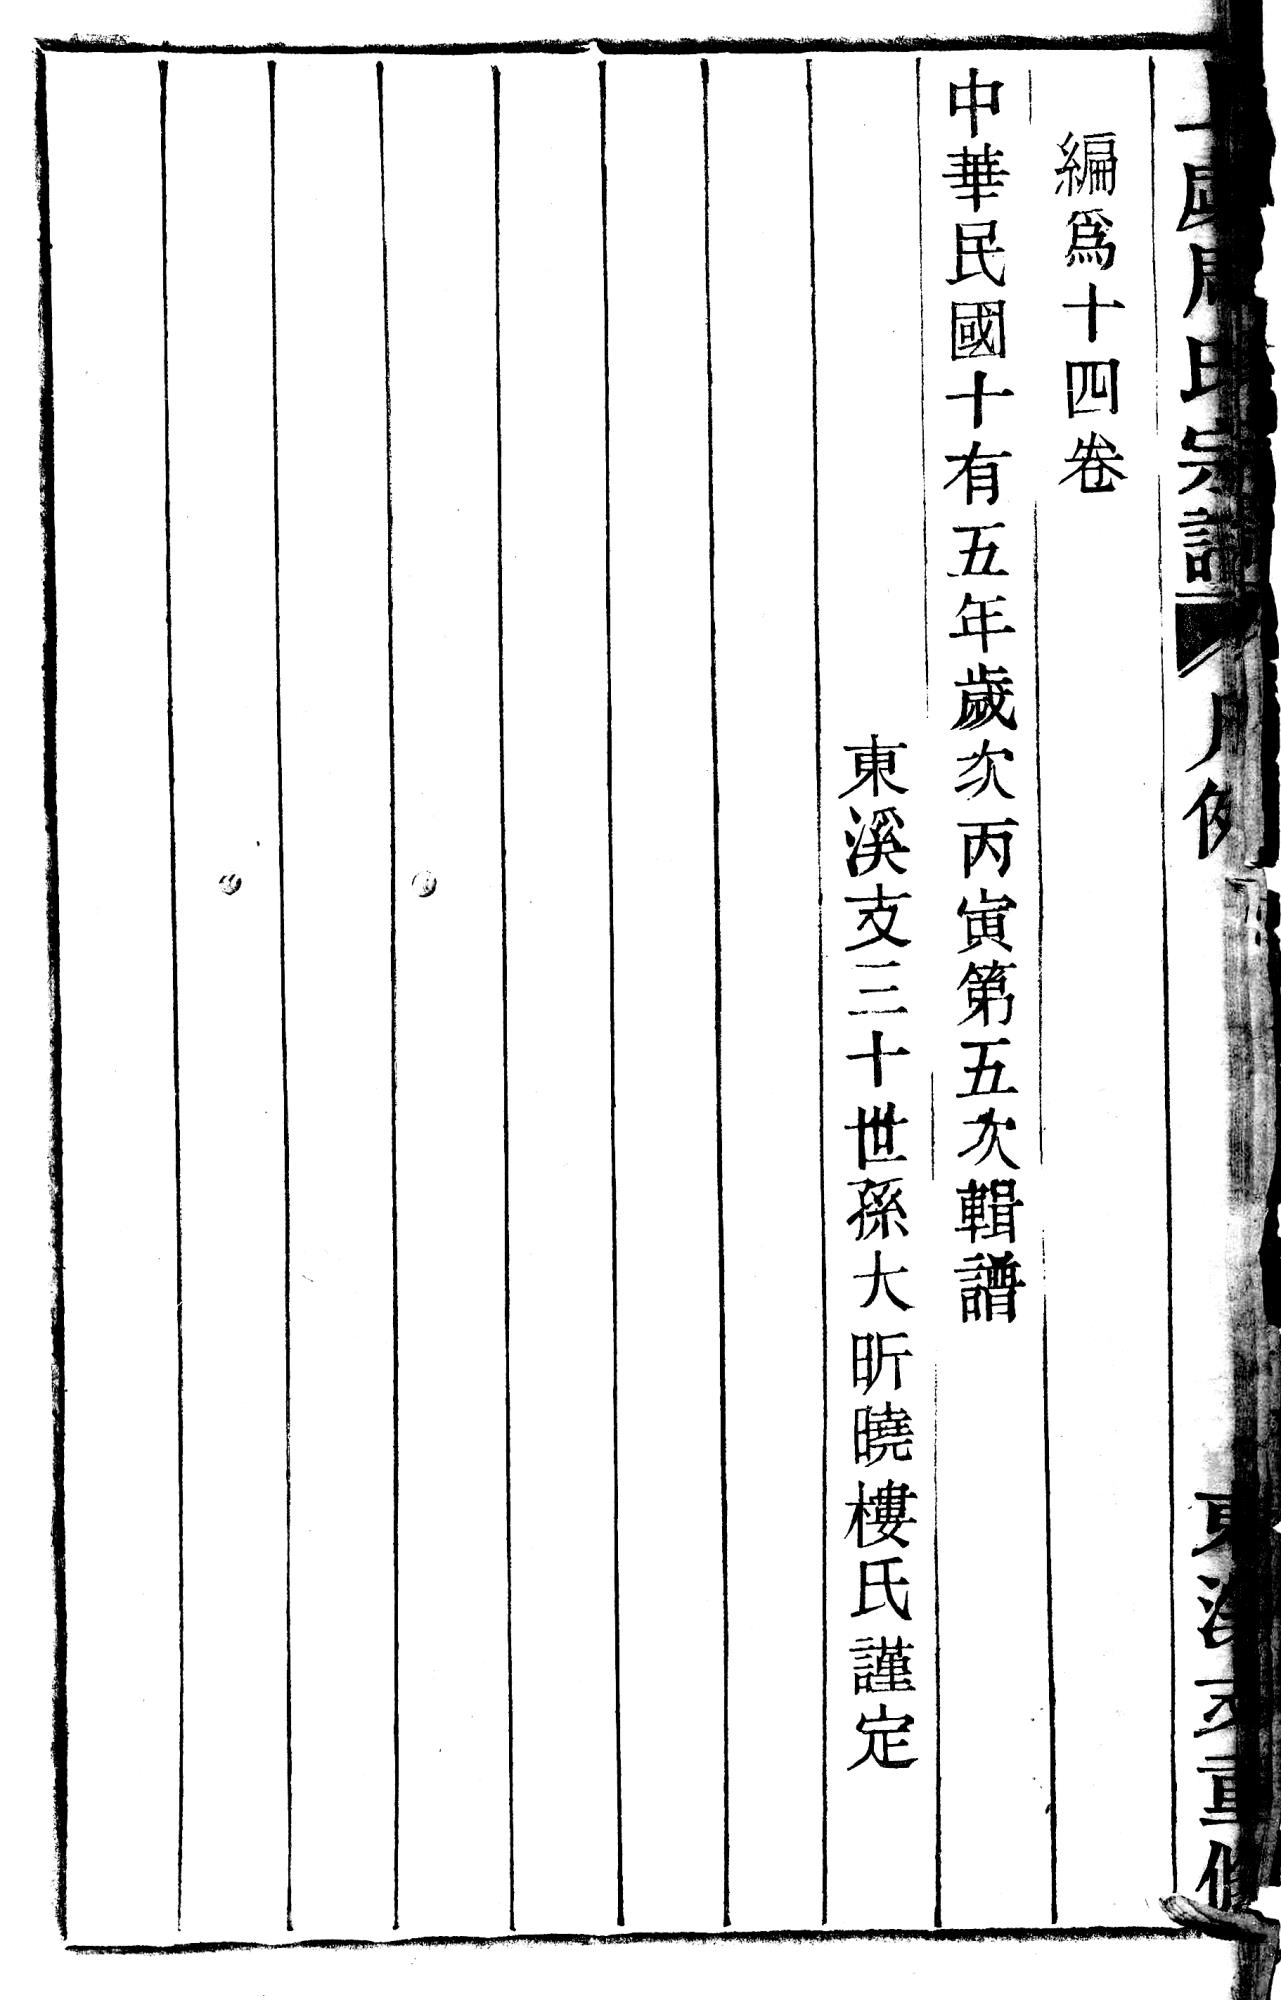 周氏宗譜 凡例 東溪支重修
編爲十四卷
中華民國十有五年歲次丙寅第五次輯譜
東溪支三十世孫大昕曉樓氏謹定